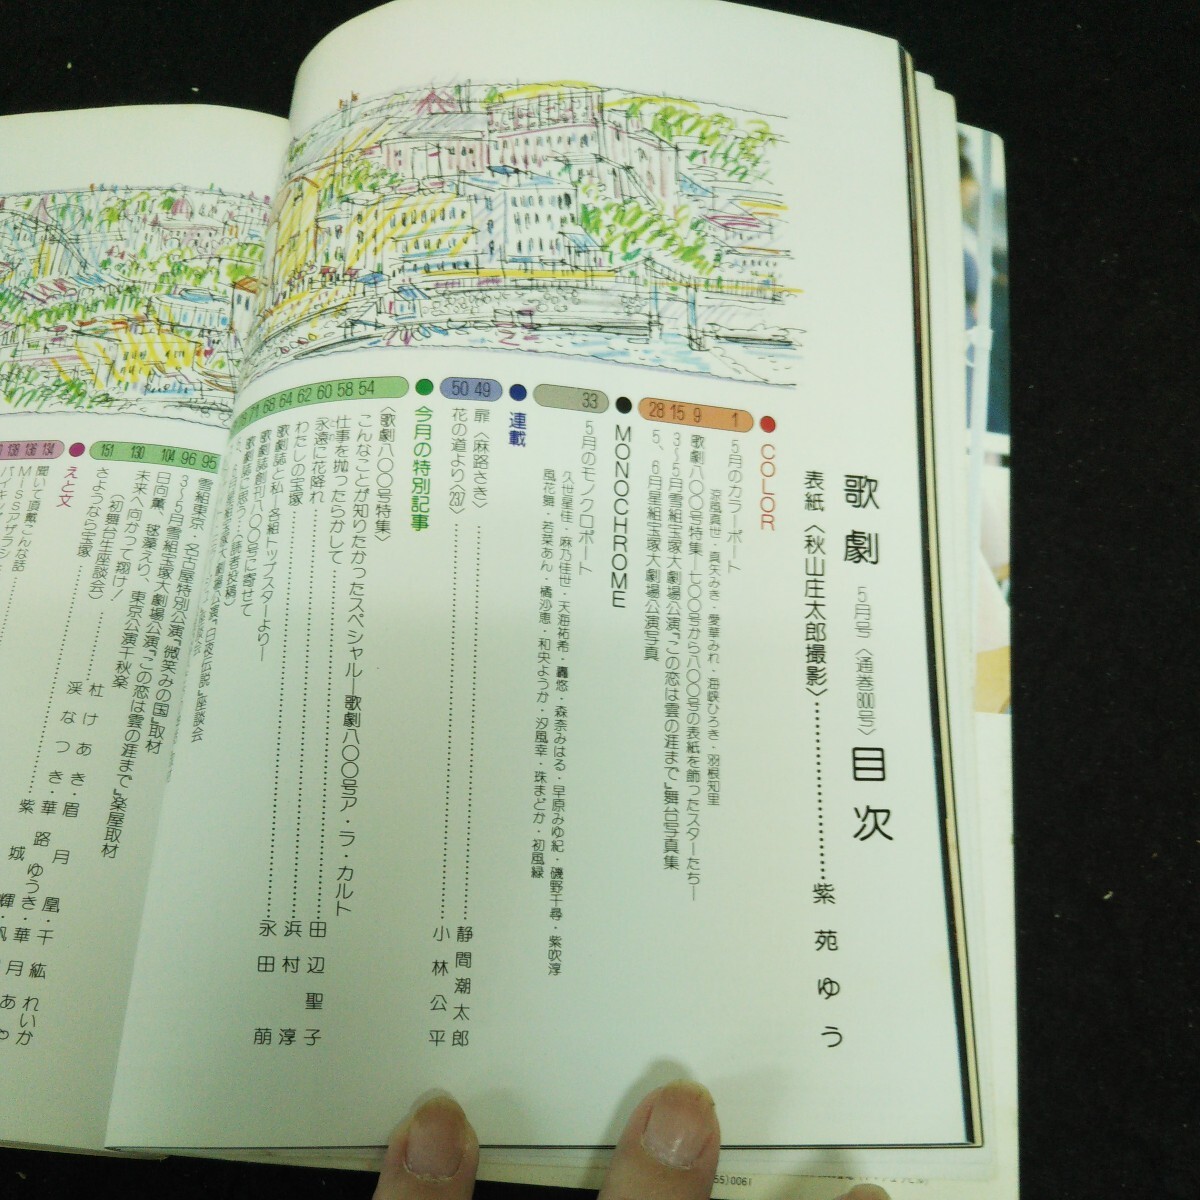 歌劇 5月号〈通巻800号〉目次
表紙〈秋山庄太郎撮影〉…………………紫苑ゆう
●COLOR
1 5月のカラーポート
涼風真世・真矢みき・愛華みれ・海峡ひろき・羽根知里
9 歌劇八〇〇号特集―七〇〇号から八〇〇号の表紙を飾ったスターたち―
15 3〜5月雪組宝塚大劇場公演『この恋は雲の涯まで』舞台写真集
28 5、6月星組宝塚大劇場公演写真
●MONOCHROME
33 5月のモノクロポート
久世星佳・麻乃佳世・天海祐希・轟悠・森奈みはる・早原みゆ紀・磯野千尋・紫吹淳
風花舞・若菜あん・橘沙恵・和央ようか・汐風幸・珠まどか・初風緑
●連載
49 扉〈麻路さき〉…………………静間潮太郎
50 花の道より〈237〉…………………小林公平
●今月の特別記事
〈歌劇八〇〇号特集〉
54 こんなことが知りたかったスペシャル―歌劇八〇〇号ア・ラ・カルト
58 仕事を抛ったらかして…………………田辺聖子
60 永遠に花降れ…………………浜村淳
62 わたしの宝塚…………………永田萠
64 歌劇誌と私―各組トップスターより―
68 歌劇誌創刊八〇〇号に寄せて
71 歌劇誌に思う…〈読者投稿〉
95 雪組東京・名古屋特別公演『微笑みの国』取材
96 3〜5月雪組宝塚大劇場公演『この恋は雲の涯まで』楽屋取材
104 日向薫、毬藻えり、東京公演千秋楽
130 未来へ向かって翔け!
〈初舞台生座談会〉
151 さようなら宝塚…………………杜けあき・眉月凰・千紘れいか
渓なつき・華路ゆうき・華月あや
●えと文
134 聞いて頂戴こんな話…………………紫城
136 MISSアザラシ